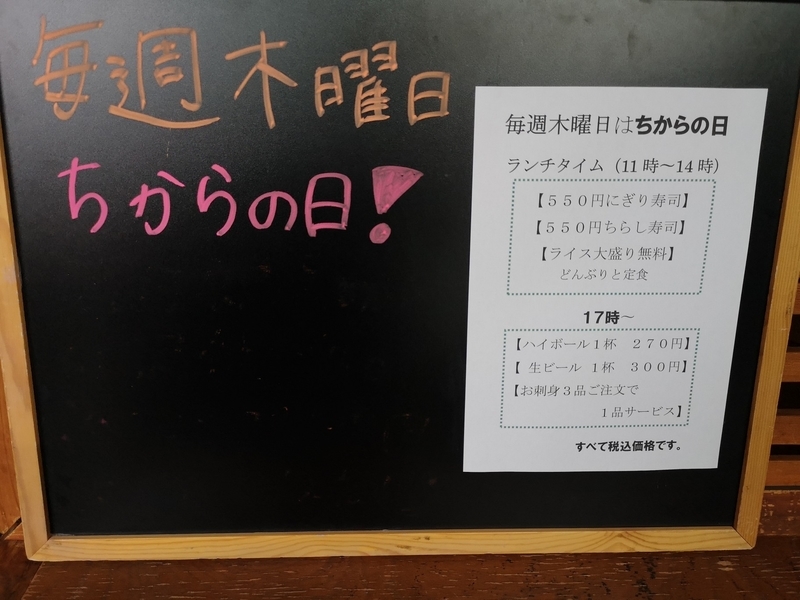 毎週木曜日
ちからの日!
毎週木曜日はちからの日
ランチタイム（11時～14時）
【５５０円にぎり寿司】
【５５０円ちらし寿司】
【ライス大盛り無料】
どんぶりと定食
17時～
【ハイボール１杯　２７０円】
【 生ビール １杯　３００円】
【お刺身３品ご注文で
１品サービス】
すべて税込価格です。